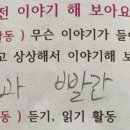 전 이야기 해 보아요
동 ) 무슨 이야기가 들어
고 상상해서 이야기해 보
과 빨간
동 ) 듣기, 읽기 활동